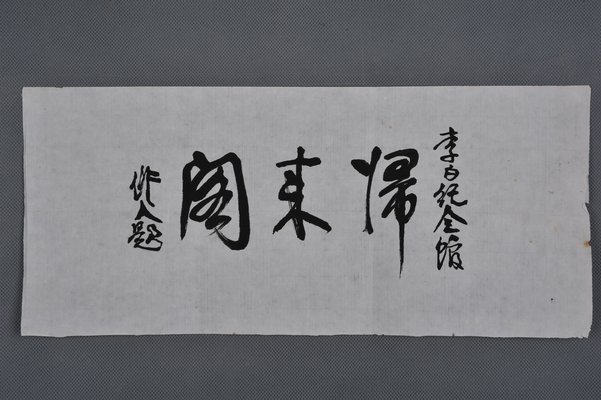 李白纪念馆
歸来阁
作人题